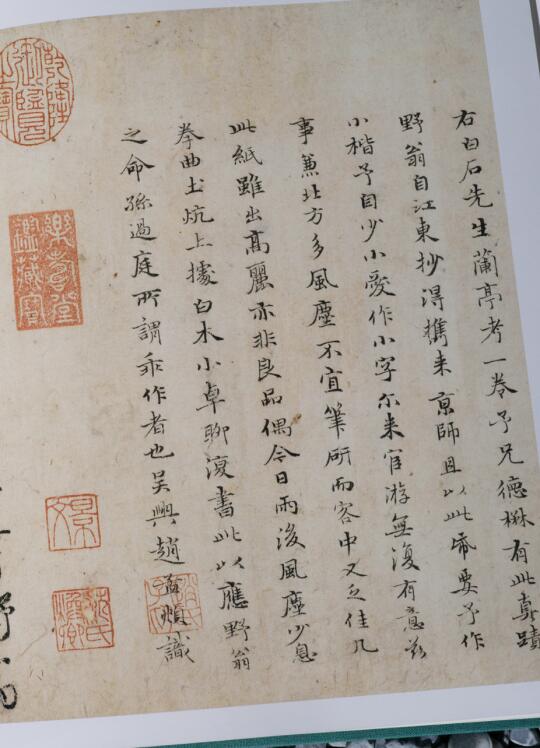 右白石先生蘭亭考一卷予兄德楙有此真蹟
野翁自江東抄得携来京師且以此帋要予作
小楷予自少小愛作小字尓来宦游無復有意茲
事兼北方多風塵不宜筆硏而客中又乏佳几
此紙雖出高麗亦非良品偶今日雨後風塵少息
拳曲土炕上據白木小卓聊復書此以應野翁
之命孫過庭所謂乖作者也吳興趙孟頫識
樂壽堂鑑藏寶